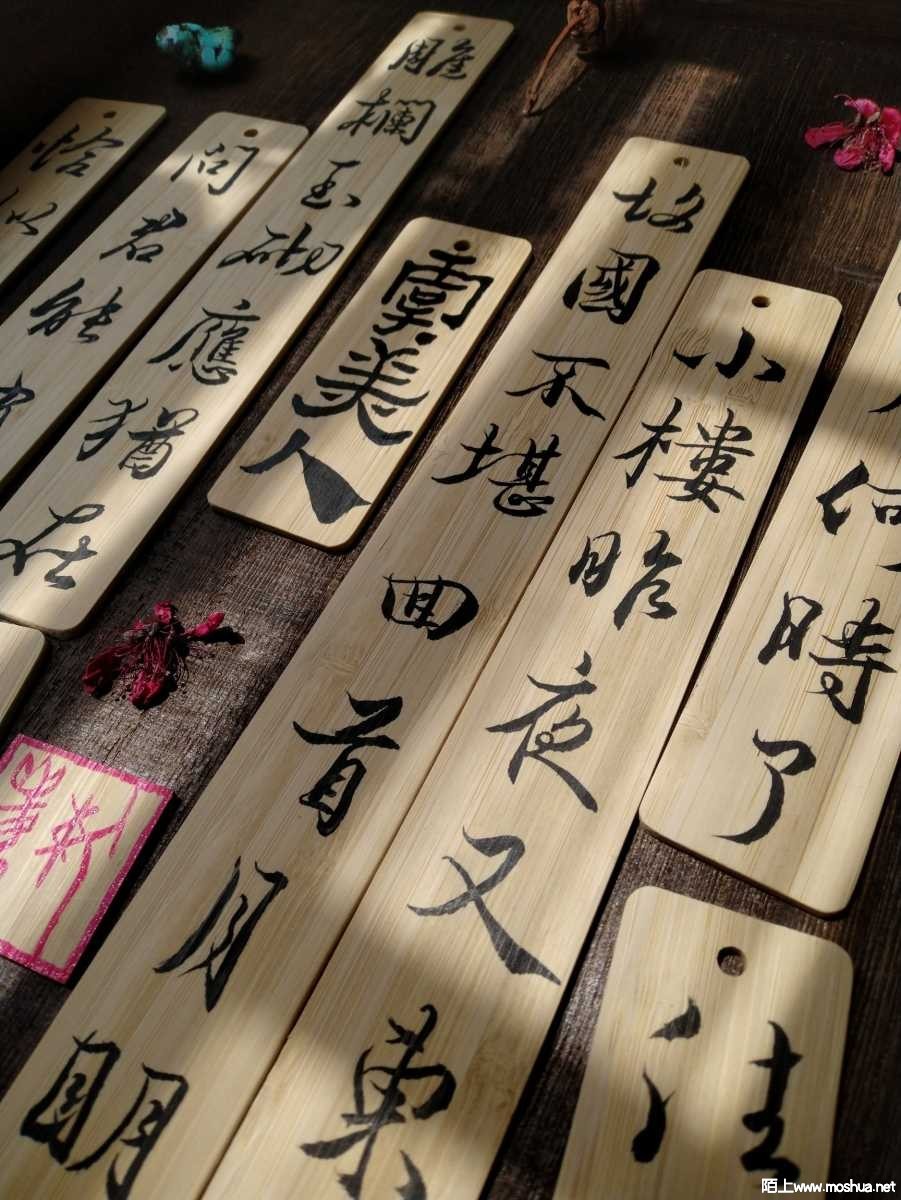 何時了
往
小樓昨夜又東
故國不堪囬首月眀
虞美人
雕欄玉砌應猶在
問君能
恰似
陌上www.moshua.net